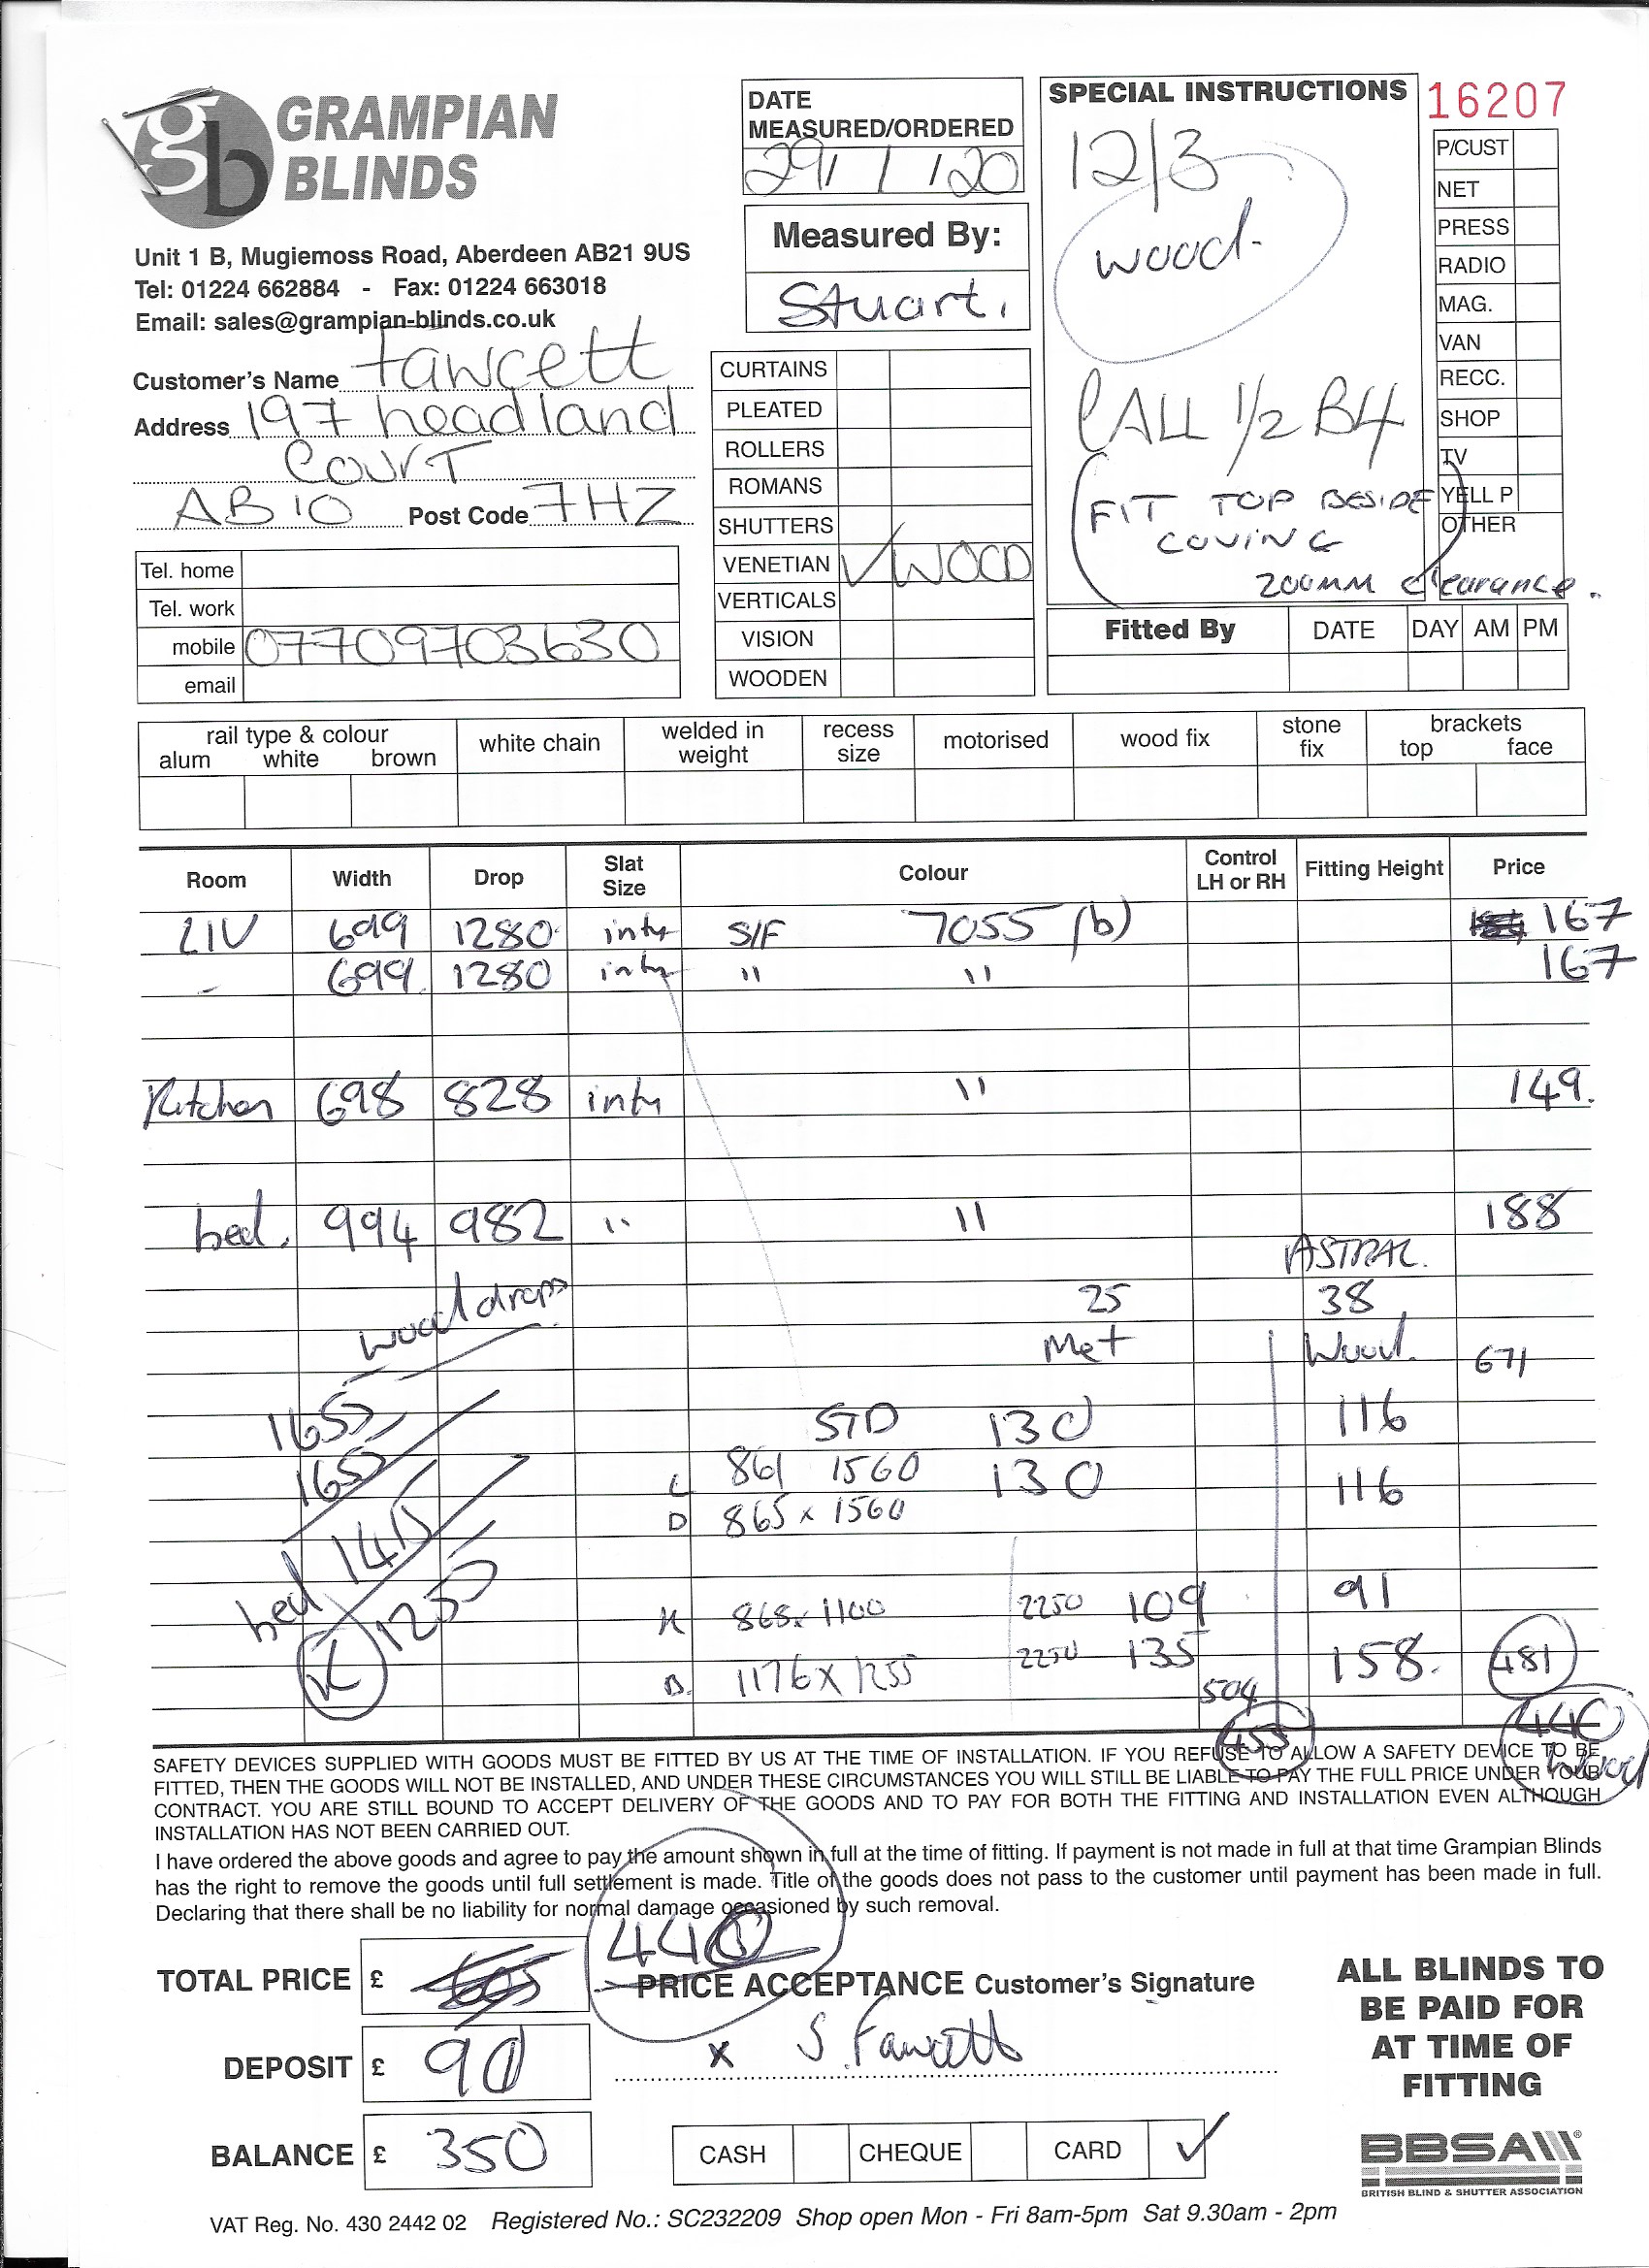 gb GRAMPIAN BLINDS
Unit 1 B, Mugiemoss Road, Aberdeen AB21 9US
Tel: 01224 662884 - Fax: 01224 663018
Email: sales@grampian-blinds.co.uk
Customer's Name Fawcett
Address 197 headland
Court
AB10 Post Code 7HZ
Tel. home
Tel. work
mobile 07709703630
email
DATE
MEASURED/ORDERED
29/1/20
Measured By:
Stuart.
CURTAINS
PLEATED
ROLLERS
ROMANS
SHUTTERS
VENETIAN ✓ WOOD
VERTICALS
VISION
WOODEN
SPECIAL INSTRUCTIONS
12/3
wood.
CALL 1/2 B4
(FIT TOP BESIDE
COVING
200MM clearance.)
16207
P/CUST
NET
PRESS
RADIO
MAG.
VAN
RECC.
SHOP
TV
YELL P
OTHER
Fitted By DATE DAY AM PM
rail type & colour
alum white brown
white chain
welded in weight
recess size
motorised
wood fix
stone fix
brackets
top face
Room Width Drop Slat Size Colour Control LH or RH Fitting Height Price
LIV 699 1280 intu S/F 7055 (b) 167
699 1280 intu " " 167
Kitchen 698 828 intu " 149.
bed. 994 982 " " 188
ASTRAL.
wood drops 25 38
Met Wood. 671
1655 STD 130 116
1655 L 861 1560 130 116
D 865 x 1560
bed 1415
K 1255
K 868 x 1100 2250 109 91
B. 1176 x 1255 2250 135 158. 481
504
455 440
wood
SAFETY DEVICES SUPPLIED WITH GOODS MUST BE FITTED BY US AT THE TIME OF INSTALLATION. IF YOU REFUSE TO ALLOW A SAFETY DEVICE TO BE
FITTED, THEN THE GOODS WILL NOT BE INSTALLED, AND UNDER THESE CIRCUMSTANCES YOU WILL STILL BE LIABLE TO PAY THE FULL PRICE UNDER YOUR
CONTRACT. YOU ARE STILL BOUND TO ACCEPT DELIVERY OF THE GOODS AND TO PAY FOR BOTH THE FITTING AND INSTALLATION EVEN ALTHOUGH
INSTALLATION HAS NOT BEEN CARRIED OUT.
I have ordered the above goods and agree to pay the amount shown in full at the time of fitting. If payment is not made in full at that time Grampian Blinds
has the right to remove the goods until full settlement is made. Title of the goods does not pass to the customer until payment has been made in full.
Declaring that there shall be no liability for normal damage occasioned by such removal.
440
TOTAL PRICE £ 605
PRICE ACCEPTANCE Customer's Signature
DEPOSIT £ 90
x S. Fawcett
BALANCE £ 350
CASH CHEQUE CARD ✓
ALL BLINDS TO
BE PAID FOR
AT TIME OF
FITTING
BBSA
BRITISH BLIND & SHUTTER ASSOCIATION
VAT Reg. No. 430 2442 02 Registered No.: SC232209 Shop open Mon - Fri 8am-5pm Sat 9.30am - 2pm